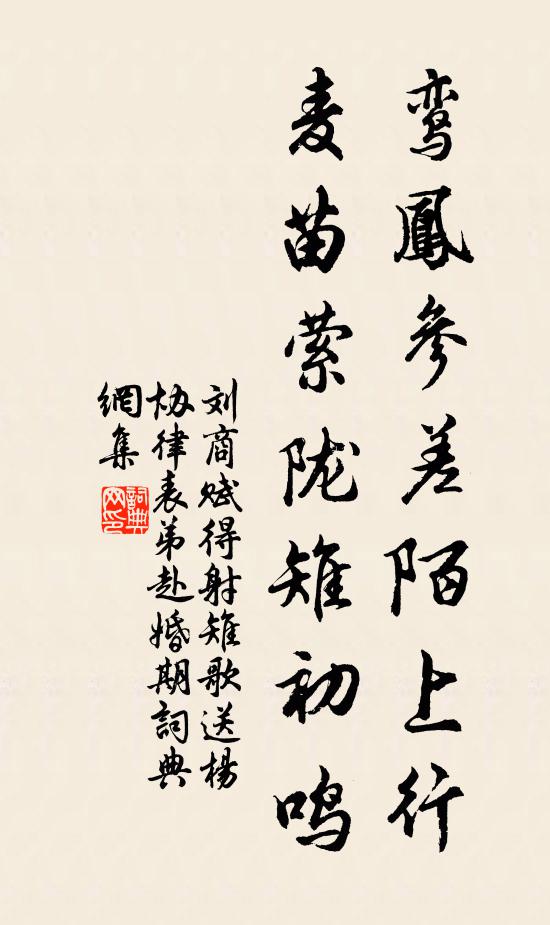 鸾鳳參差陌上行
麦苗萦陇雉初鸣
刘商赋得射雉歌送楊
协律表弟赴婚期詞典
網集
詞典
网印